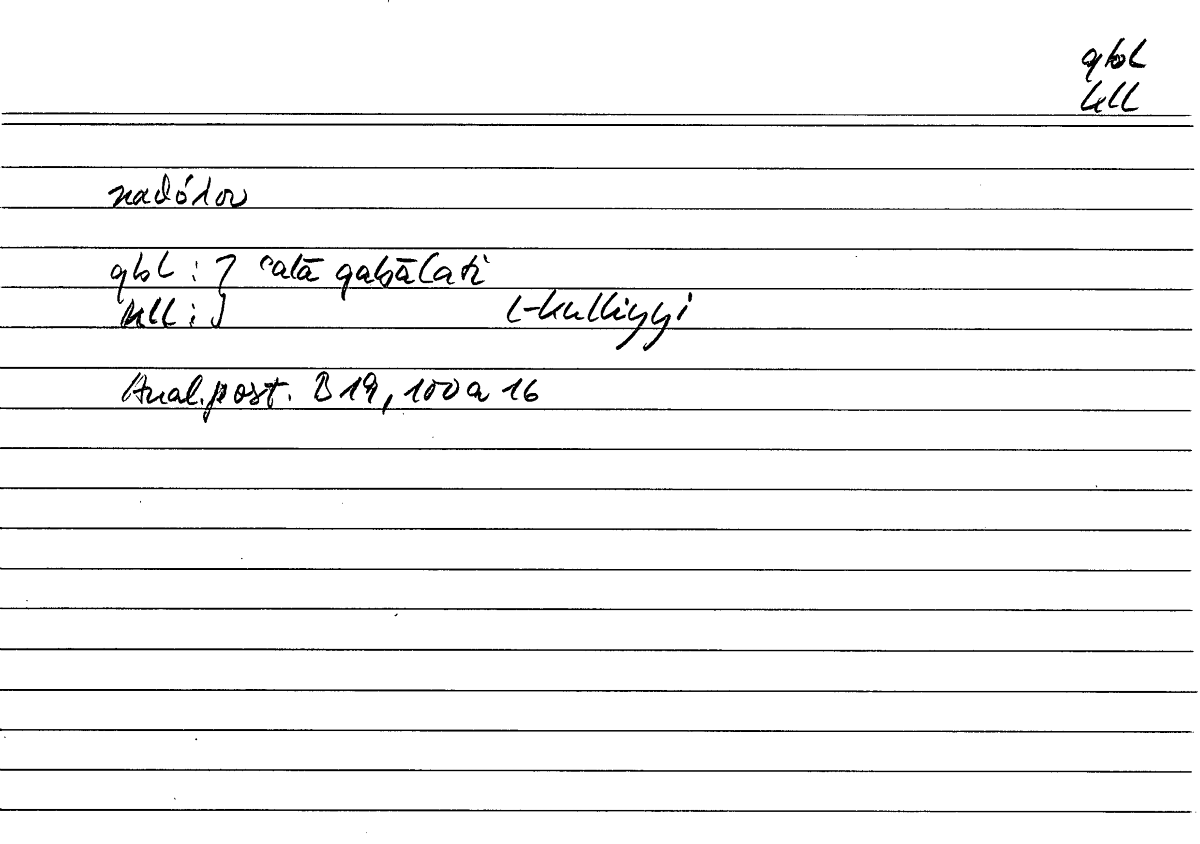 qbl
kll
καθόλου
qbl : } ʿalā qabālati
kll : } l-kulliyyi
Anal. post. B 19, 100 a 16